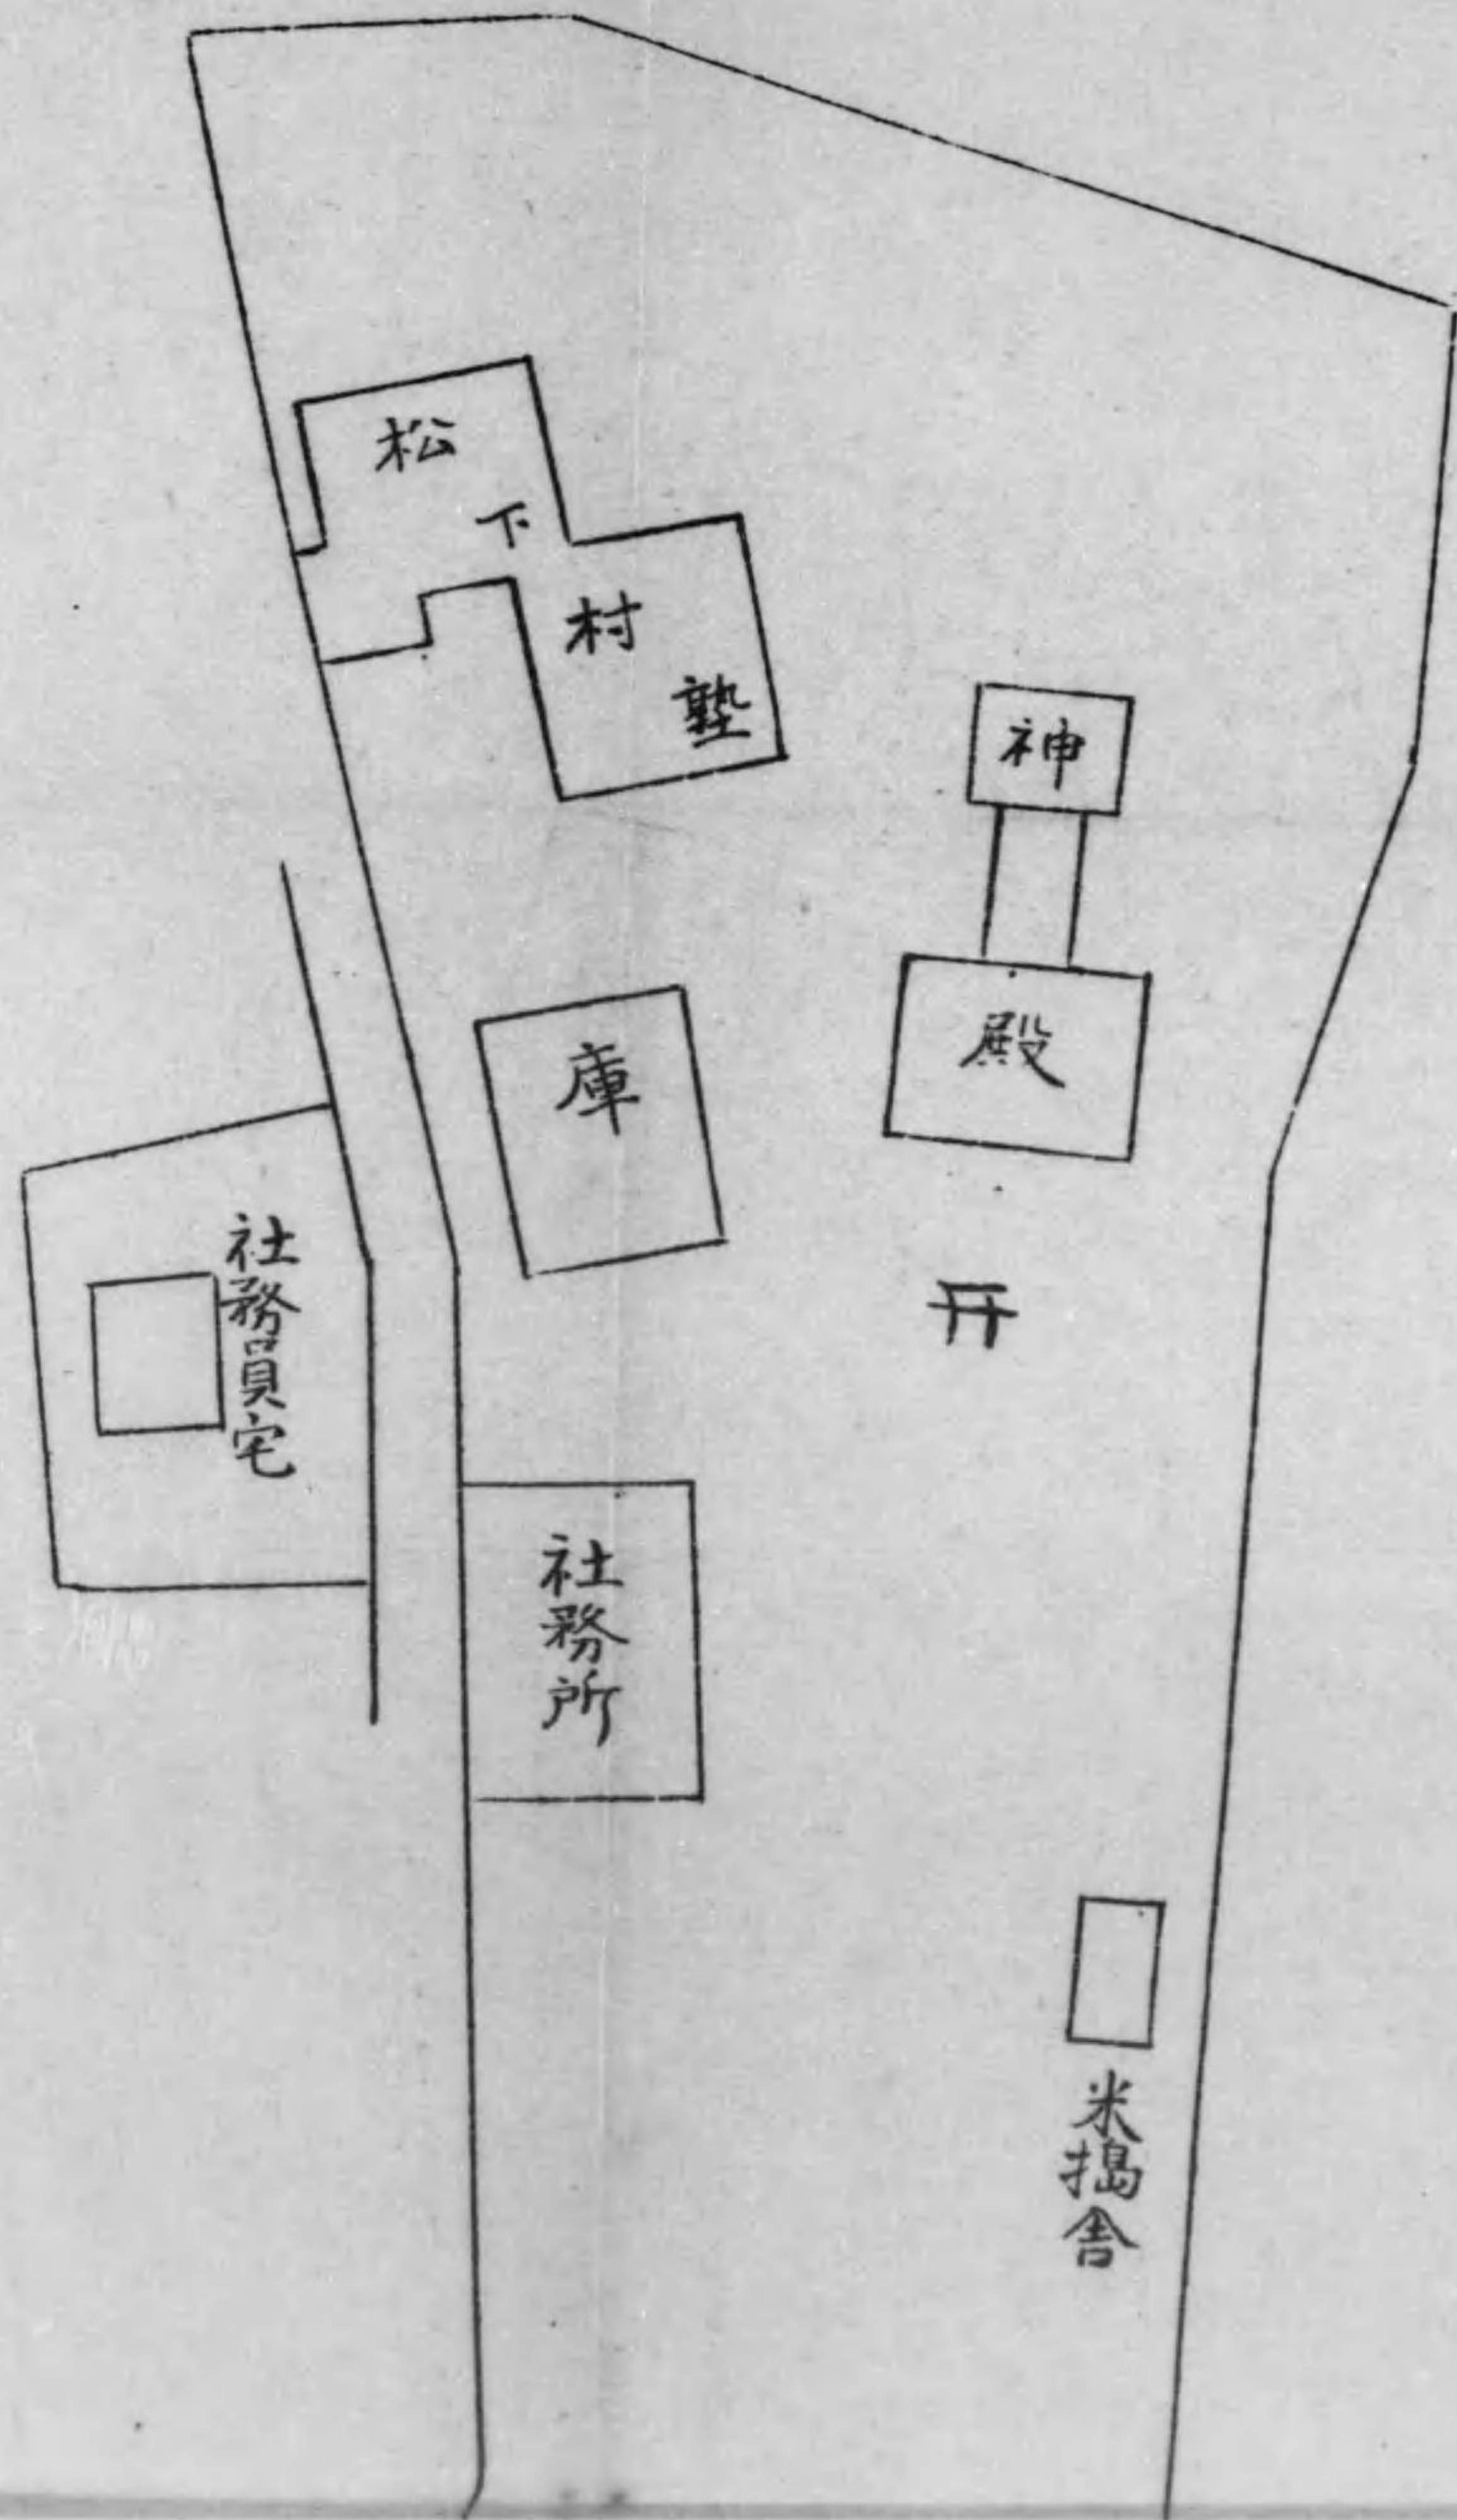 松下村塾
神殿
庫
社務員宅
社務所
米搗舎